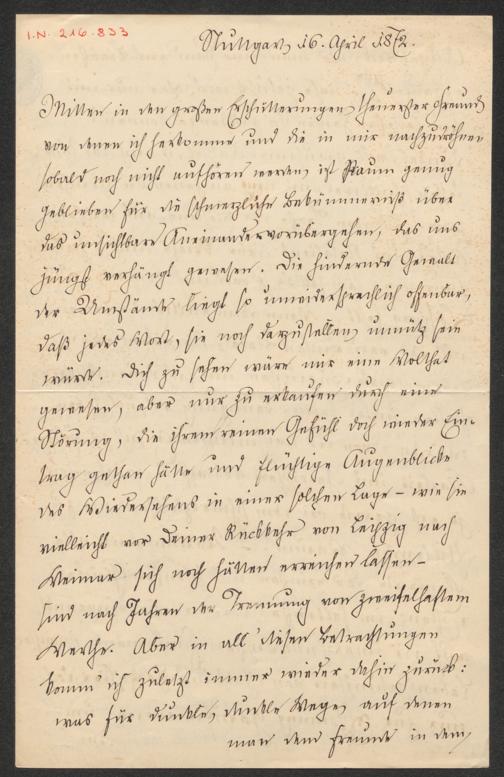 I.N. 216.833
Stuttgart, 16. April 1872.
Mitten in den großen Erschütterungen, theuerster Freund,
von denen ich herkomme und die in mir nachzudröhnen
sobald noch nicht aufhören werden, ist Raum genug
geblieben für die schmerzliche Bekümmerniß über
das unsichtbare Aneinandervorübergehen, das uns
jüngst verhängt gewesen. Die hindernde Gewalt
der Umstände liegt so unwidersprechlich offenbar,
daß jedes Wort, sie noch darzustellen, unnütz sein
würde. Dich zu sehen wäre mir eine Wolthat
gewesen, aber nur zu erkaufen durch eine
Störung, die ihrem reinen Gefühl doch wieder Ein-
trag gethan hätte und flüchtige Augenblicke
des Wiedersehens in einer solchen Lage – wie sie
vielleicht vor Deiner Rückkehr von Leipzig nach
Weimar sich noch hätten erreichen lassen –
sind nach Jahren der Trennung von zweifelhaftem
Werthe. Aber in all' diesen Betrachtungen
komm' ich zuletzt immer wieder dahin zurück:
was für dunkle, dunkle Wege, auf denen
man dem Freunde in dem